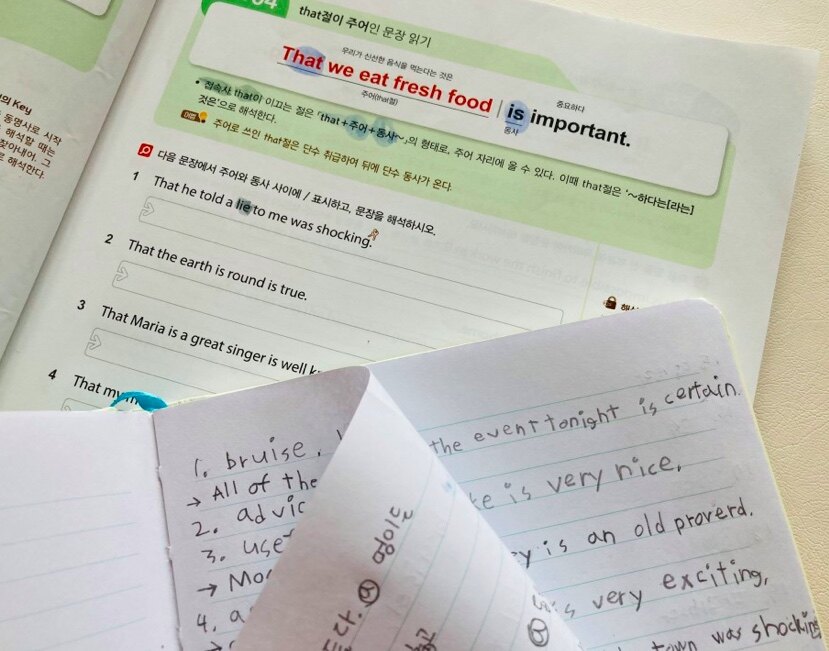 04 that절이 주어인 문장 읽기
우리가 신선한 음식을 먹는다는 것은 중요하다
That we eat fresh food | is important.
주어(that절) 동사
• 접속사 that이 이끄는 절은 「that+주어+동사~」의 형태로, 주어 자리에 올 수 있다. 이때 that절은 '~하다는[라는]
것은'으로 해석한다.
어법 주어로 쓰인 that절은 단수 취급하여 뒤에 단수 동사가 온다.
다음 문장에서 주어와 동사 사이에 / 표시하고, 문장을 해석하시오.
1 That he told a lie to me was shocking.
2 That the earth is round is true.
3 That Maria is a great singer is well
4 That my
의 Key
동명사로 시작
해석할 때는
찾아내어, 그
해석한다.
1. bruise,
→ All of the
2. advic
3. use
→ Mo
4. a
the event tonight is certain.
is very nice,
y is an old proverd.
is very exciting,
town was shocking